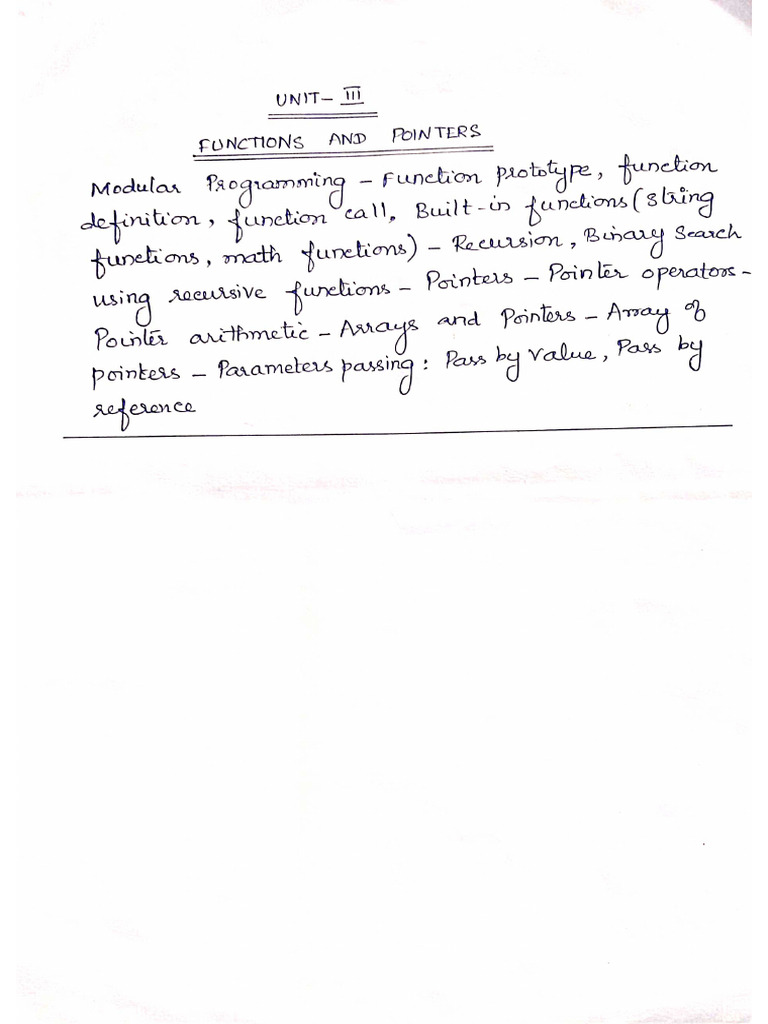 UNIT- III
FUNCTIONS AND POINTERS
Modular Programming - Function prototype, function
definition, function call, Built-in functions (string
functions, math functions) - Recursion, Binary Search
using recursive functions - Pointers - Pointer operators -
Pointer arithmetic - Arrays and Pointers - Array of
pointers - Parameters passing: Pass by value, Pass by
reference